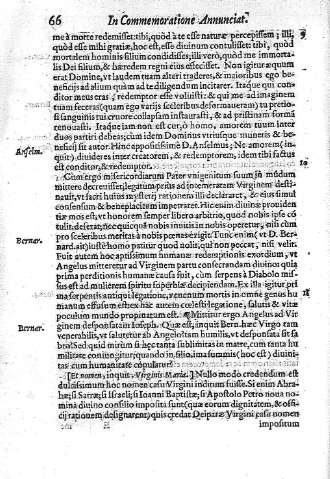 66 In Commemoratione Annunciat.
me à morte redemisset: tibi, quòd à te esse naturæ percepissem; illi,
quòd esse mihi gratiæ, hoc est, esse diuinum contulisset: tibi, quòd
mortalem hominis filium condidisses; illi verò, quòd me immorta
lis Dei filium, & hæredem regni eius effecisset. Non igitur æquum
erat Domine, vt laudem tuam alteri traderes, & maioribus ego be
neficijs ad alium quàm ad te diligendum incitarer. Itaque qui con
ditor meus eras, redemptor esse voluisti: & qui me ad imaginem
tuam feceras (quam ego varijs sceleribus deformaueram) tu pretio
si sanguinis tui cruore collapsam instaurasti, & ad pristinam formā
renouasti. Itaque iam non est cur, ò homo, amorem tuum inter
duos partiri debeas; cùm idem Dominus vtriusque muneris & be-
neficij sit autor. Hinc appositissimè D. Anselmus; Ne amorem (in-
Anselm. quit) diuideres inter creatorem, & redemptorem, idem tibi factus
est conditor, & redemptor. 10
Cùm ergo misericordiarum Pater vnigenitum suum in mūdum
mittere decreuisset, legatum prius ad intemeratam Virginem desti-
nauit, vt sacri huius mysterij rationem illi declararet, & eius simul
consensum & beneplacitum impetraret. Hic enim diuinæ prouiden
tiæ mos est, vt honorem semper libero arbitrio, quod nobis ipse cō
tulit, deferat, nec quicquā nobis inuitis in nobis operetur, nisi cùm
Bernar. pro sceleribus meritas à nobis pœnas exigit. Tunc enim, vt D. Ber-
nard. ait, iustè homo patitur quod nolit, qui non peccat, nisi velit.
Fuit autem hoc aptissimum humanæ redemptionis exordium, vt
Angelus mitteretur ad Virginem partu consecrandam diuino: quia
prima perditionis humanæ causa fuit, cùm serpens à Diabolo mis-
sus est ad mulierem spiritu superbiæ decipiendam. Ex illa igitur pri
ma serpentis antiqui legatione, venenum mortis in omne genus hu 11
manum effusum est: ex hac autem cœlesti legatione, salutis & vitæ
poculum mundo propinatum est. ¶ Mittitur ergo Angelus ad Vir
ginem desponsatam Ioseph. Quæ est, inquit Bern. hæc Virgo tam
Bernar. venerabilis, vt salutetur ab Angelo: tam humilis, vt desponsata sit fa
bro? Sed quid mirum si hæc tanta sublimitas in matre, cum tanta hu
militate coniungitur, quando in filio ima summis (hoc est) diuini-
tas cum humanitate copulatur?
[Et nomen, inquit, Virginis Maria.] Nullo modo credendum est
dulcissimum hoc nomen casu Virgini inditum fuisse. Si enim Abra-
hæ, si Saræ, si Israeli, si Ioanni Baptistæ, si Apostolo Petro noua no-
mina diuino consilio imposita sunt (quæ eorum dignitatem, & offi-
cij rationem designarent) quis credat Deiparæ Virgini casu nomen
impositum